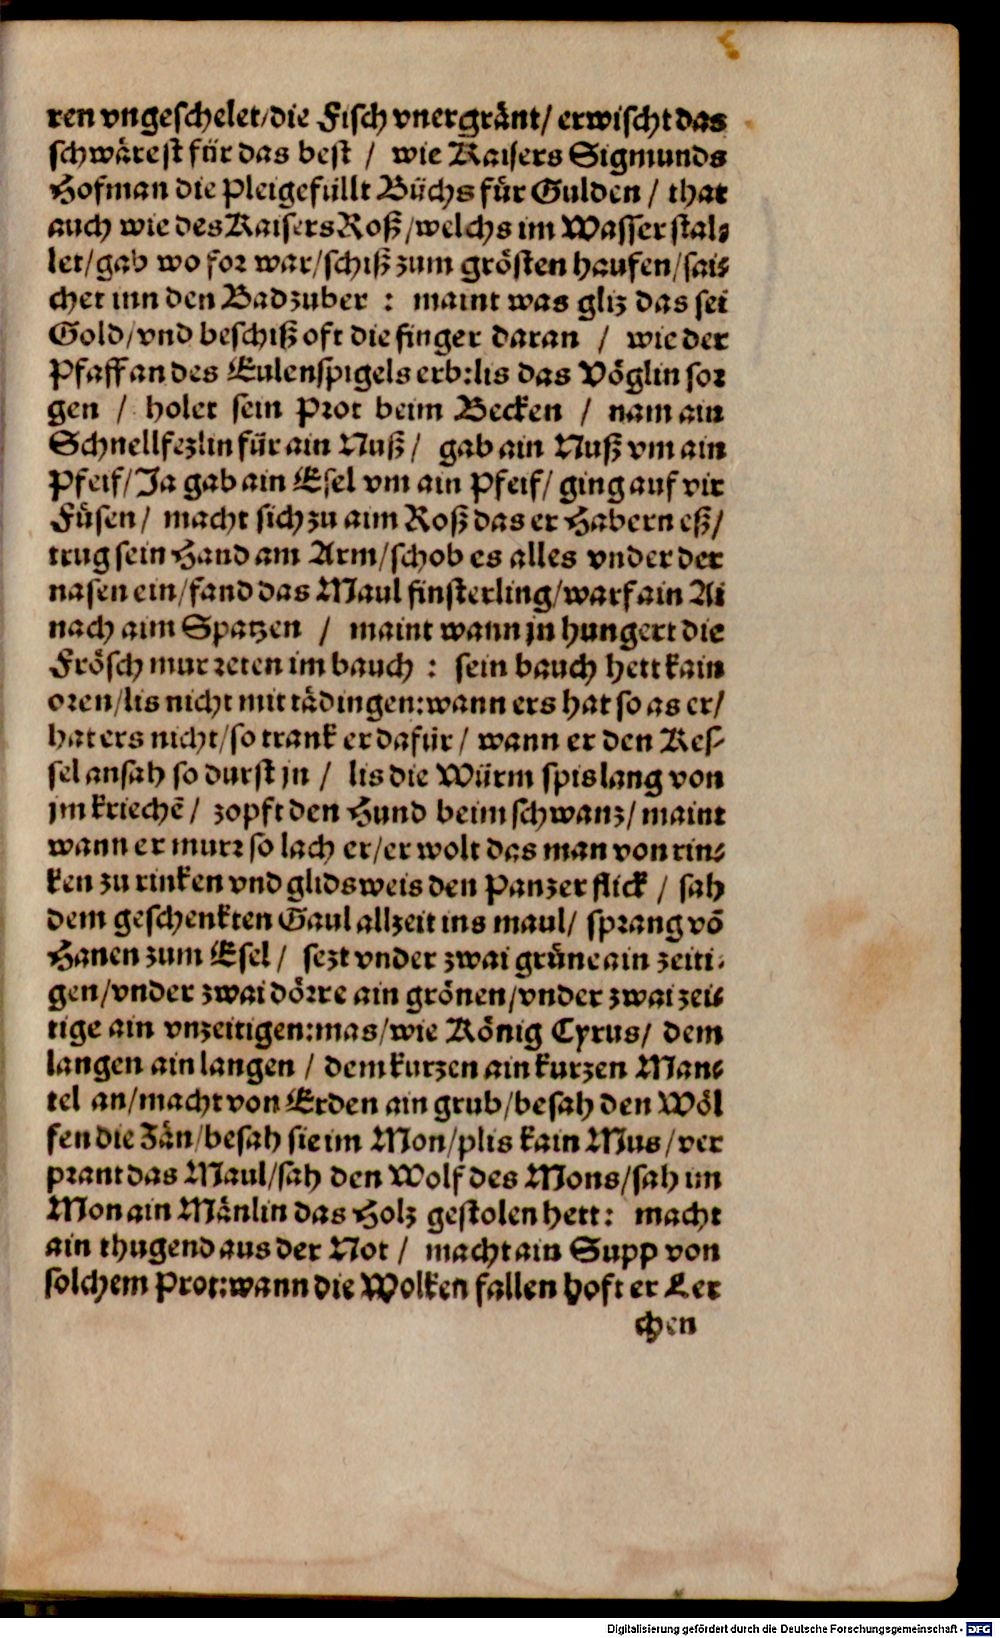 ren vngeschelet/die Fisch vnergränt/ erwischt das
schwärest für das best / wie Kaisers Sigmunds
Hofman die Pleigefüllt Büchs für Gulden / that
auch wie des Kaisers Roß/welchs im Wasser stal⸗
let/gab wo for war/schiß zum grösten haufen/sai⸗
chet inn den Badzuber : maint was gliz das sei
Gold/vnd beschiß oft die finger daran / wie der
Pfaff an des Eulenspigels erb:lis das Vöglin sor
gen / holet sein Prot beim Becken / nam ain
Schnellfezlin für ain Nuß / gab ain Nuß vm ain
Pfeif/Ja gab ain Esel vm ain Pfeif/ ging auf vir
Füsen/ macht sich zu aim Roß das er Habern eß/
trug sein Hand am Arm/schob es alles vnder der
nasen ein/fand das Maul finsterling/warf ain Ai
nach aim Spatzen / maint wann jn hungert die
Frösch murreten im bauch : sein bauch hett kain
oren/lis nicht mit tädingen:wann ers hat so as er/
hat ers nicht/so trank er dafür / wann er den Kes⸗
sel ansah so durst jn / lis die Würm spislang von
jm kriechẽ / zopft den Hund beim schwanz/ maint
wann er murr so lach er/er wolt das man von rin⸗
ken zu rinken vnd glidsweis den Panzer flick / sah
dem geschenkten Gaul allzeit ins maul/ sprang võ
Hanen zum Esel / sezt vnder zwai grüne ain zeiti⸗
gen/vnder zwai dörre ain grönen/vnder zwai zei⸗
tige ain vnzeitigen:mas/wie König Cyrus/ dem
langen ain langen / dem kurzen ain kurzen Man⸗
tel an/macht von Erden ain grub/besah den Wöl
fen die Zän/besah sie im Mon/plis kain Mus/ver
prant das Maul/sah den Wolf des Mons/sah im
Mon ain Mänlin das Holz gestolen hett: macht
ain thugend aus der Not / macht ain Supp von
solchem Prot:wann die Wolken fallen hoft er Ler
chen
Digitalisierung gefördert durch die Deutsche Forschungsgemeinschaft - DFG